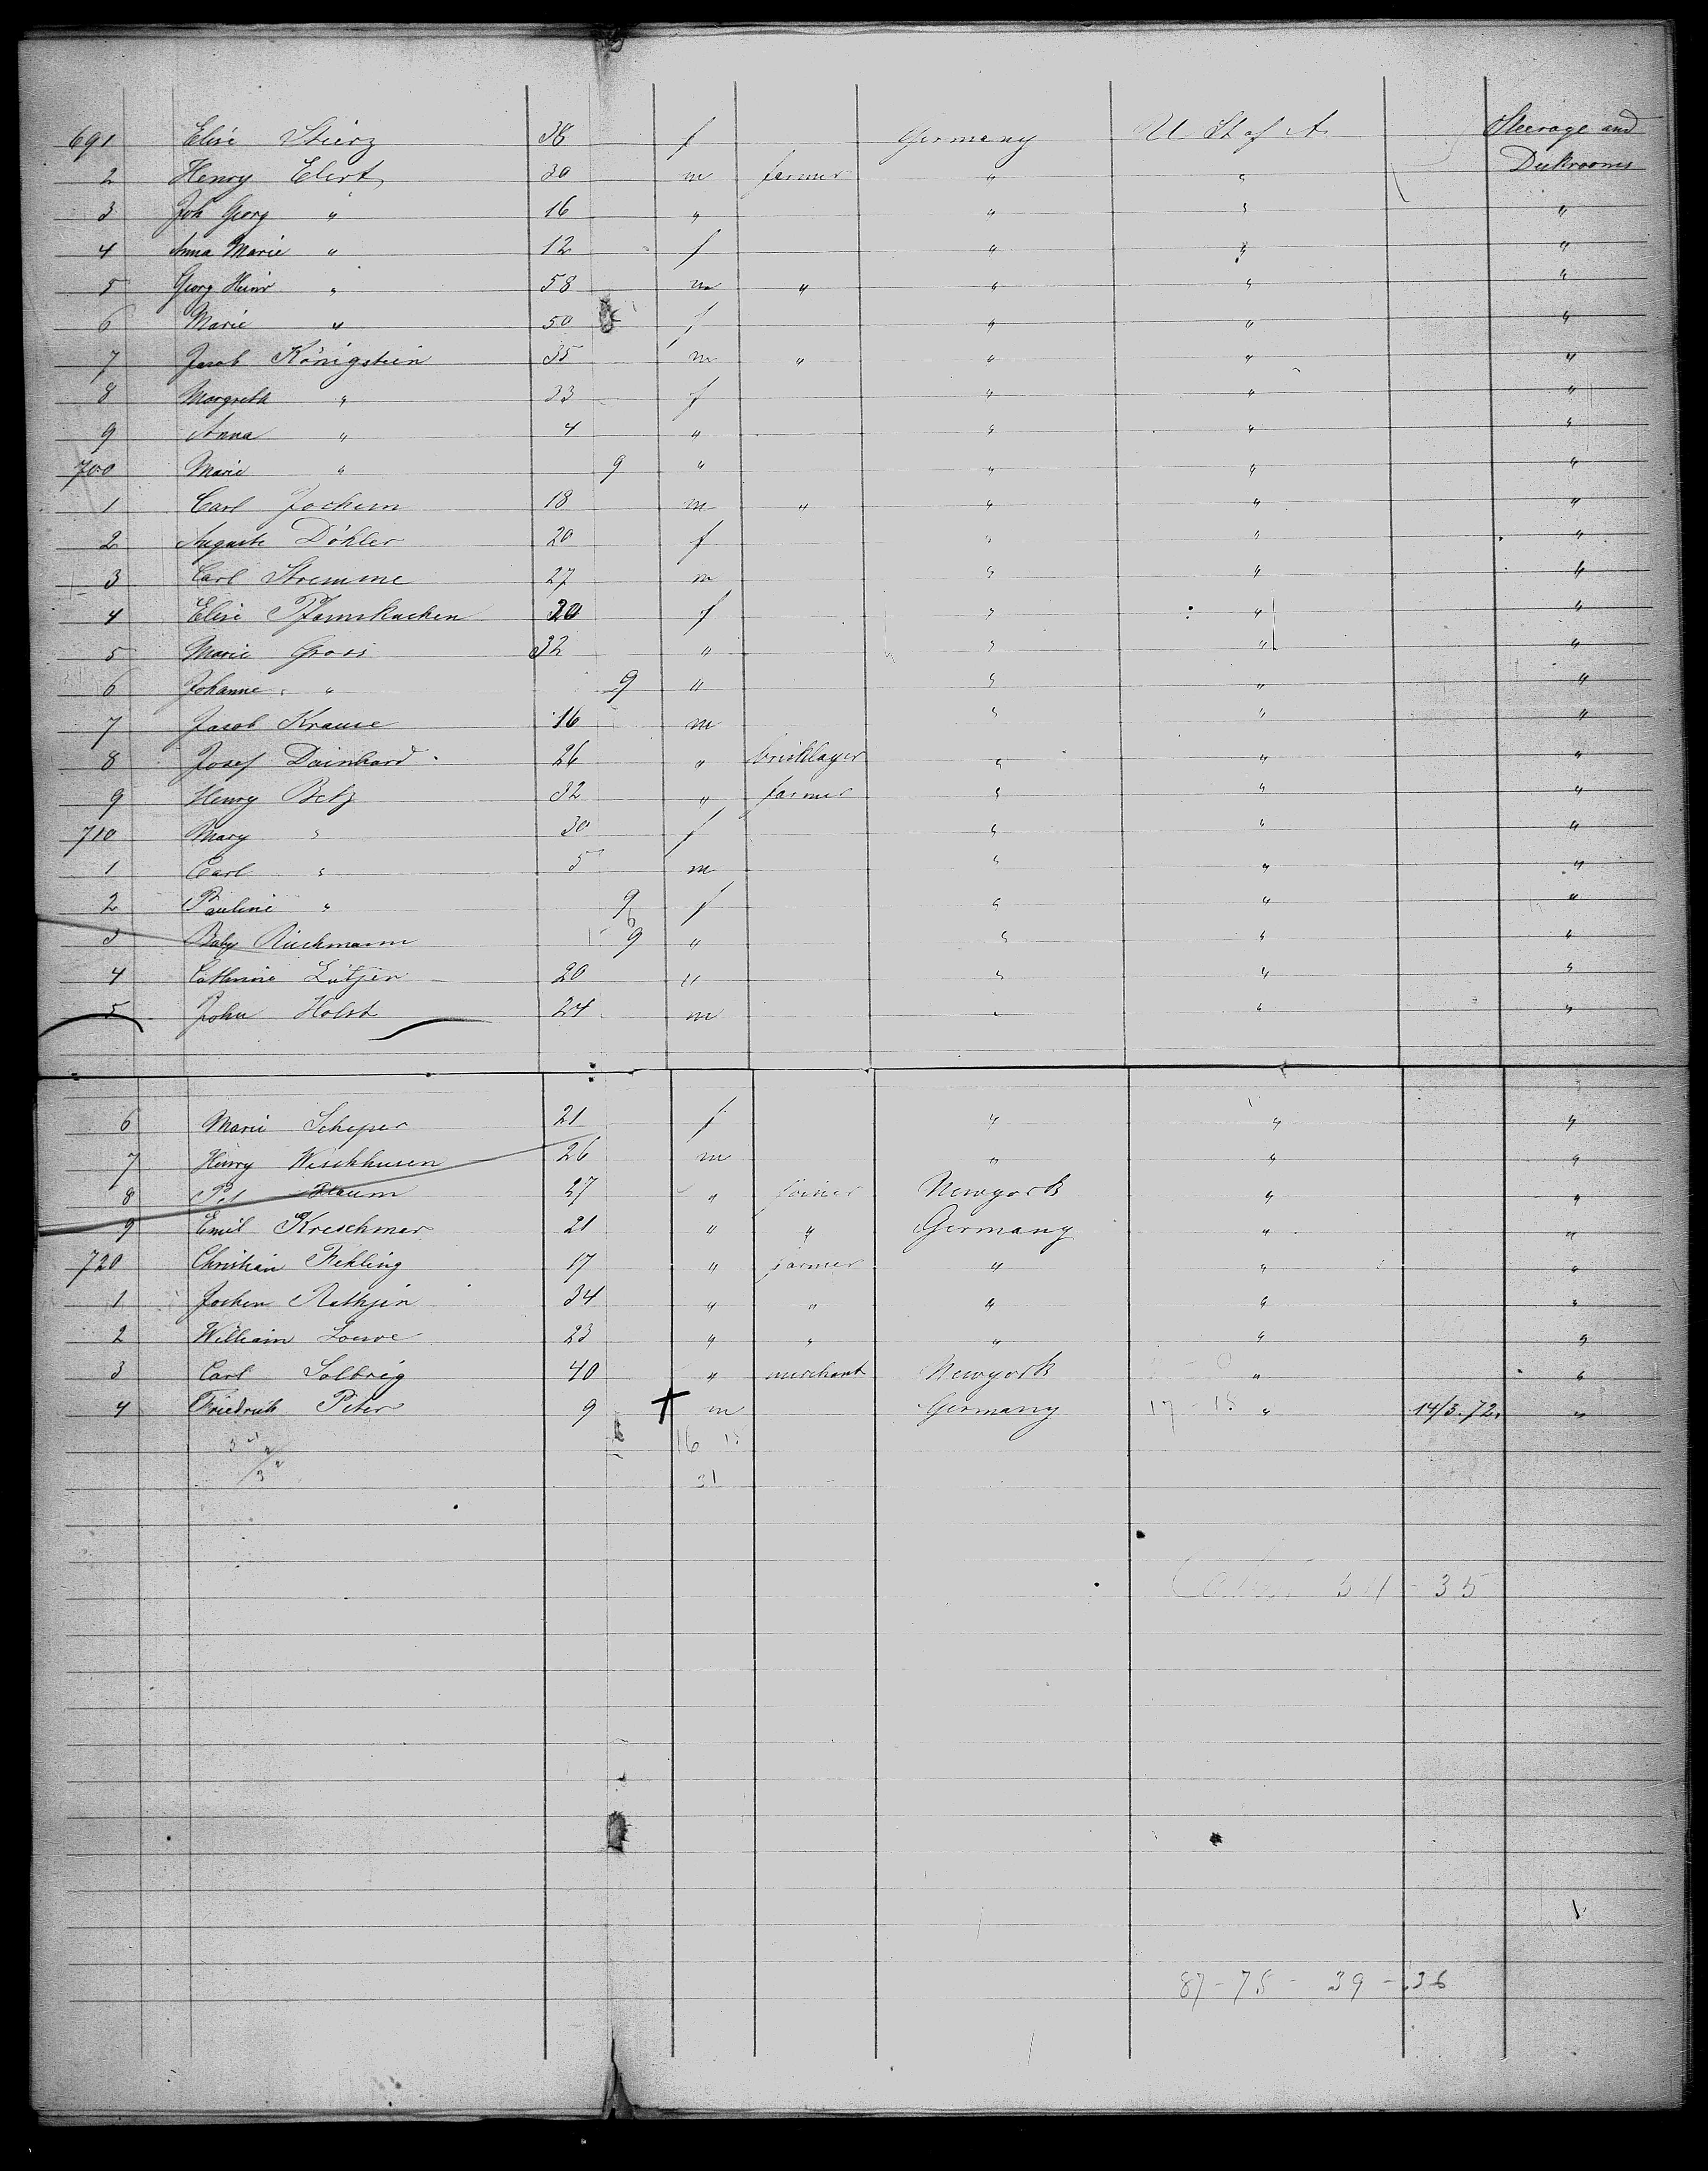 Steerage and
691 Elise Stierz 38 f Germany U. St of A.
Deckrooms
2 Henry Elert 30 m farmer " "
3 Joh Georg " 16 " " " "
4 Anna Marie " 12 f " " "
5 Georg Heinr " 58 m " " " "
6 Marie " 50 f " " "
7 Jacob Königstein 35 m " " " "
8 Margreth " 33 f " " "
9 Anna " 4 " " " "
700 Marie " 9 " " " "
1 Carl Jochum 18 m " " " "
2 Auguste Döhler 20 f " " "
3 Carl Stremme 27 m " " "
4 Elise Pfannkuchen 20 f " " "
5 Marie Gross 32 " " " "
6 Johanne " 9 " " " "
7 Jacob Krause 16 m " " "
8 Josef Dainhard 26 " bricklayer " " "
9 Henry Betz 32 " farmer " " "
710 Mary " 30 f " " "
1 Carl " 5 m " " "
2 Pauline " 9 f " " "
3 Baby Rückmann 9 " " " "
4 Cathrine Lütjen 20 " " " "
5 John Holst 24 m " " "
6 Marie Scheper 21 f " " "
7 Henry Wischhusen 26 m " " "
8 Blaum 27 " joiner Newyork " "
9 Emil Kreschmer 21 " " Germany " "
720 Christian Fehling 17 " farmer " " "
1 Jochen Rathjen 34 " " " " "
2 William Loewe 23 " " " " "
3 Carl Solbrig 40 " merchant Newyork " "
4 Friedrich Peter 9 + m Germany 17 - 18 " 14/3.72. "
16 15
31
34 - 35
87 - 78 - 39 - 36